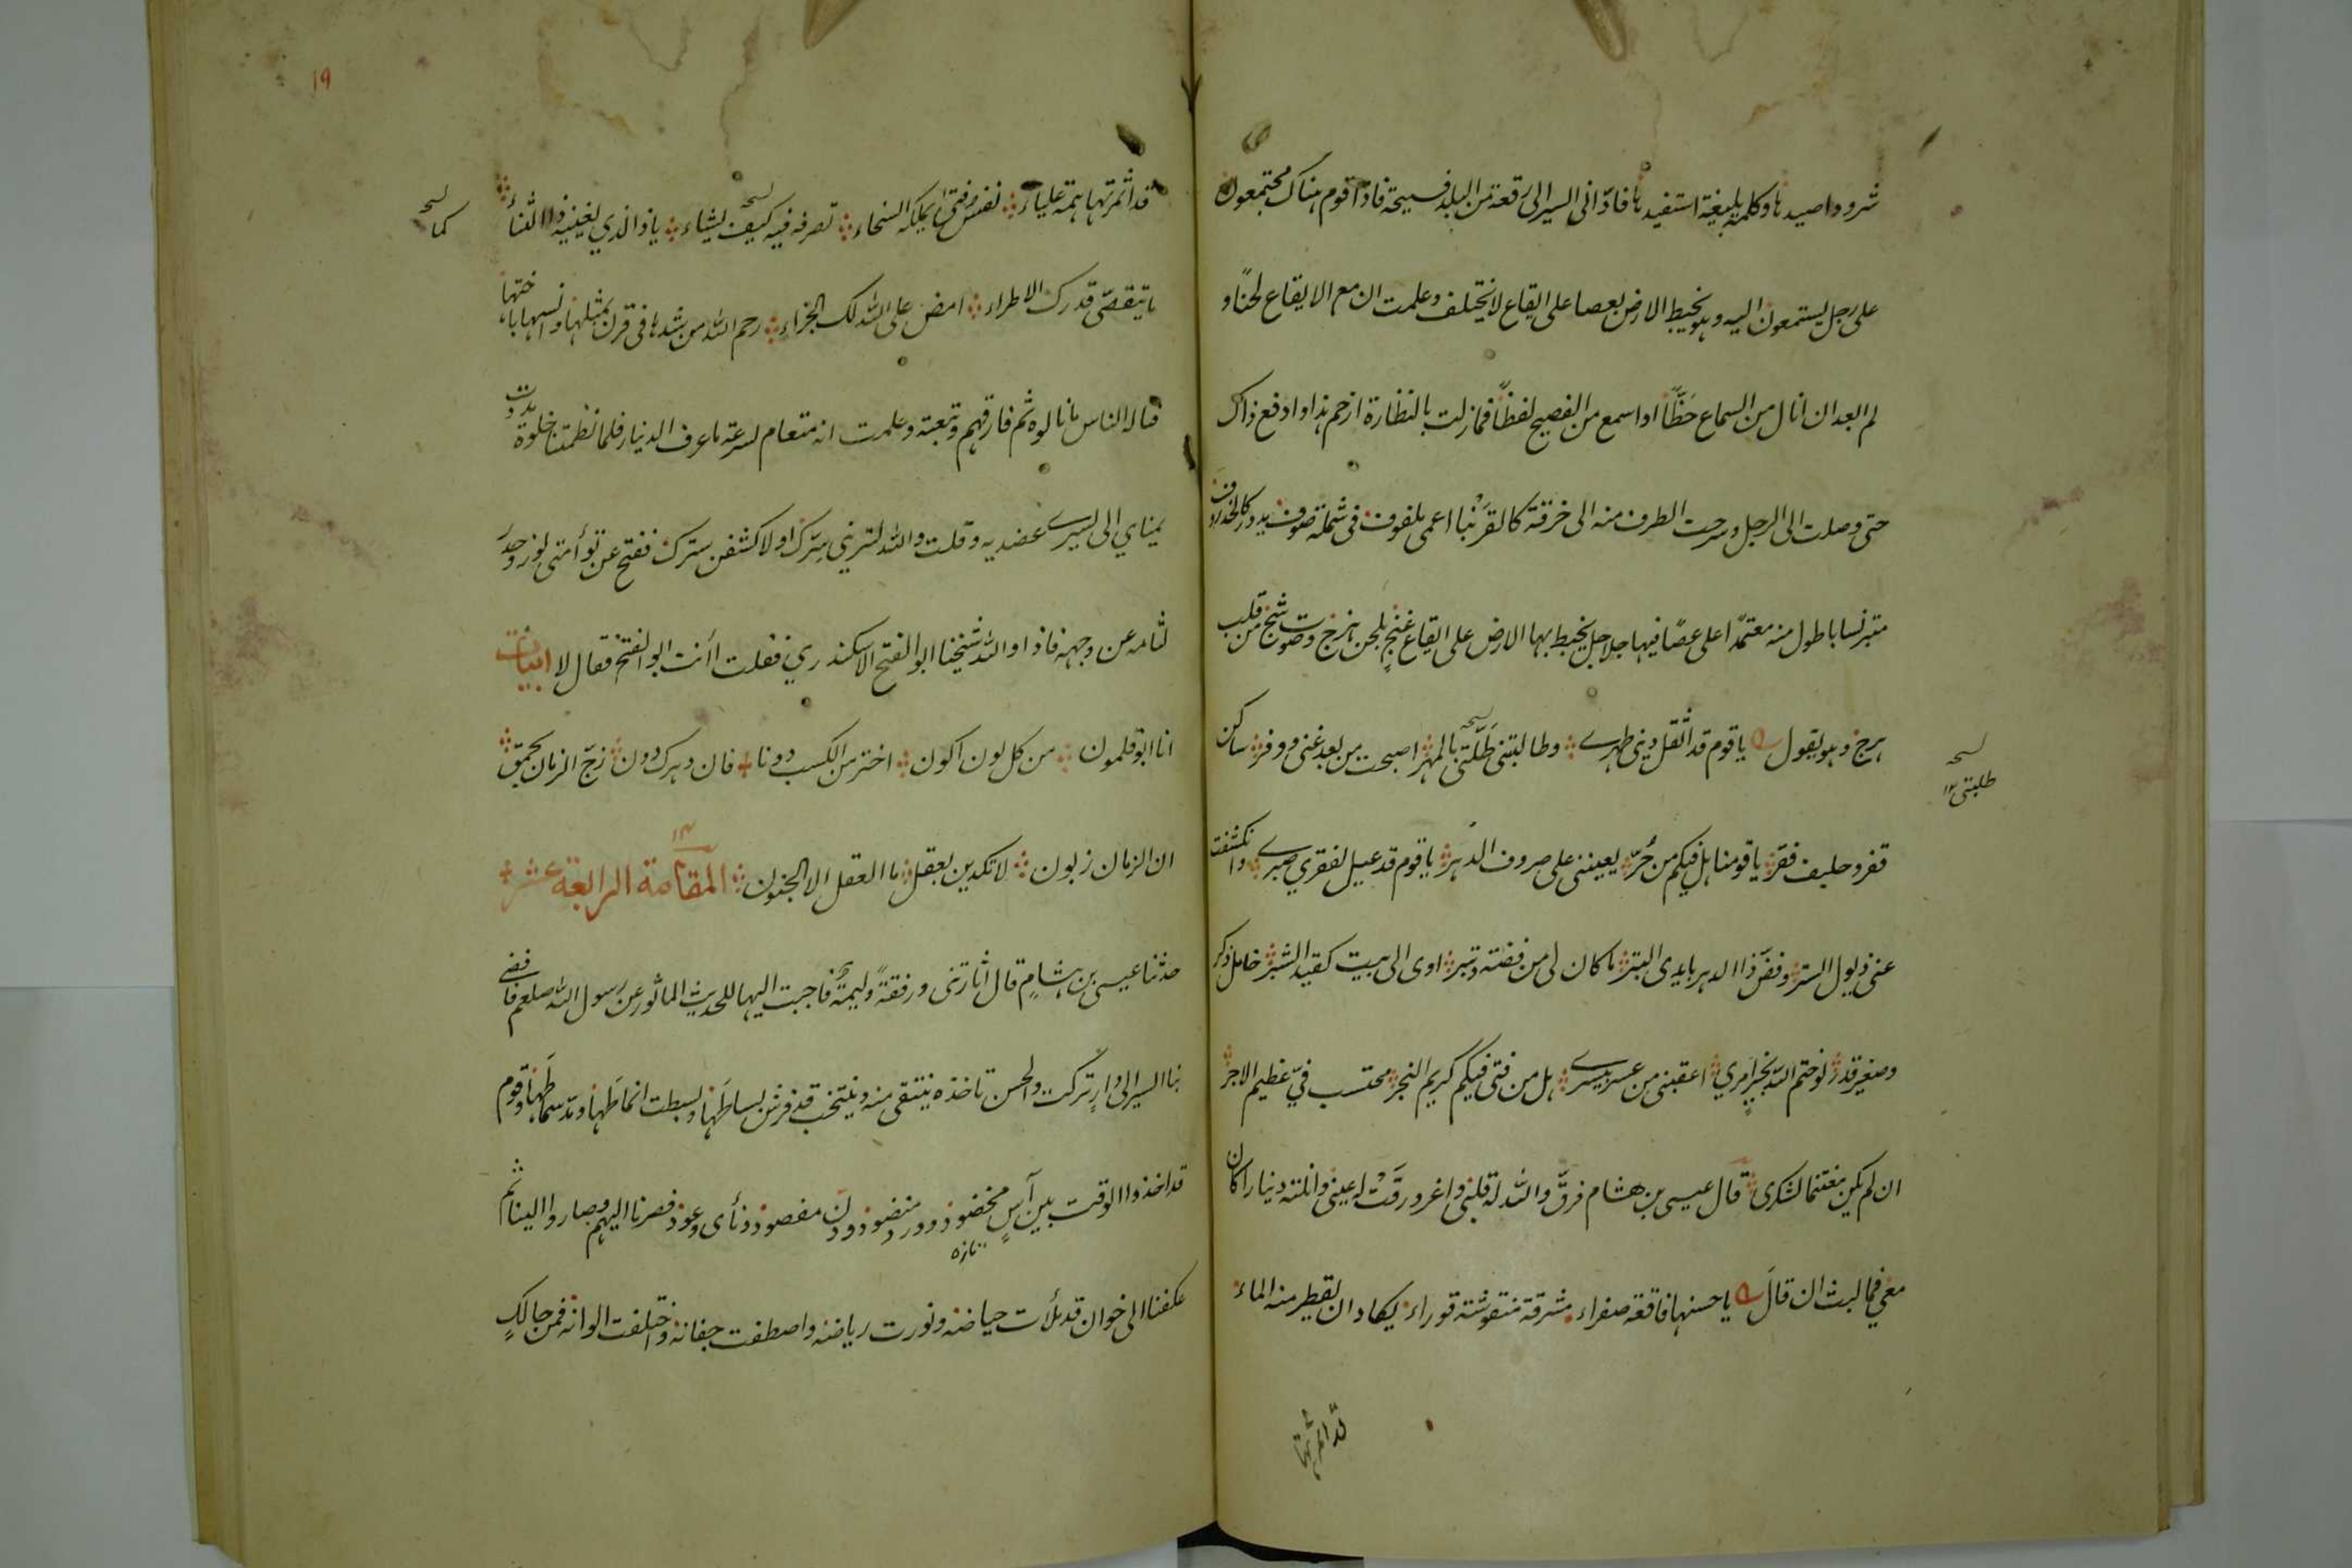 شرود اصيدها وكلمة بليغة استفيدها فادّانى السير الى رقعة من البلد فسيحة فاذا قوم هناك مجتمعون
على رجل يستمعون اليه وهو يخبط الارض بعصا على ايقاع لا يختلف وعلمت ان مع الايقاع لحنًا و
لم ابعد ان انال من السماع حَظًّا او اسمع من الفصيح لفظًا فما زلت بالنظارة ازحم هذا وادفع ذاك
حتى وصلت الى الرجل وسرحت الطرف منه الى خرقة كالقَرَنْبا اعمى ملفوف فى شملة صوف يدور كالخذروف
متبرنسا باطول منه معتمدًا على عصًا فيها جلاجل يخبط بها الارض على ايقاع غنج بلحن هزج وصوت شج من قلب
هرج وهو يقول يا قوم قد اثقل دينى ظهرى وطالبتنى طَلَّتى بالمهر اصبحت من بعد غنى ووفر ساكن
نسخه طلبتى ١٢
قفر وحليف فقر يا قومنا هل فيكم من حُرّ يعيننى على صروف الدهر يا قوم قد عيل لفقرى صبرى وانكشفت
عنى ذيول الستر وفضّ ذا الدهر بايدى البتر ما كان لى من فضة وتبر اوى الى بيت كقيد الشبر خامل ذكر
وصغير قدر لو ختم الله بخير امرى اعقبنى من عسر بيسر هل من فتى فيكم كريم النجر محتسب فىّ عظيم الاجر
ان لم يكن مغتنما لشكرى قال عيسى بن هشام فرقّ والله له قلبى واغرورقَتْ له عينى وانلته دينارا كان
معى فما لبث ان قالَ يا حسنها فاقعة صفراء مشرقة منقوشة قوراء يكاد ان يقطر منه الماء
قد اثمرتها
١٩
قد اثمرتها همة علياء نفس فتى يملكه السخاء تصرفه فيه كيف يشاء يا ذا الذي يغنيه ذا الثناء
نسخه كما
ما يتقصّى قدرك الاطراء امض على الله لك الجزاء رحم الله من شدها فى قرن بمثلها وانسها باختها
فناله الناس ما نالوه ثم فارقهم وتبعته وعلمت انه متعام لسرعة ما عرف الدينار فلما نظمتنا خلوة مدت
يمناي الى يسرى عضديه وقلت والله لتريني سرّك او لاكشفن سترك ففتح عن توأمتى لوز وحدر
لثامه عن وجهه فاذا والله شيخنا ابو الفتح الاسكندري فقلت أأنت ابو الفتح فقال لا ابيات
انا ابو قلمون من كل لون اكون اختر من الكسب دونا فان دهرك دون زجّ الزمان بحمق
ان الزمان زبون لا تكدين بعقل ما العقل الا الجنون المقامة الرابعة عشر ١٤
حدثنا عيسى بن هشام قال اثارتنى ورفقةً وليمةٌ فاجبت اليها للحديث الماثور عن رسول الله صلعم فافضى
بنا السير الى دار تركت والحسن تاخذه ينتقى منه وينتخب قد فرش بساطها وبسطت انماطها ومد سماطها وقوم
قد اخذوا الوقت بين آس مخضود وورد منضود ودن مفصود وناى وعود فصرنا اليهم وصاروا الينا ثم
تازه
عكفنا الى خوان قد ملأت حياضه ونورت رياضه واصطفت جفانه واختلفت الوانه فمن حالك